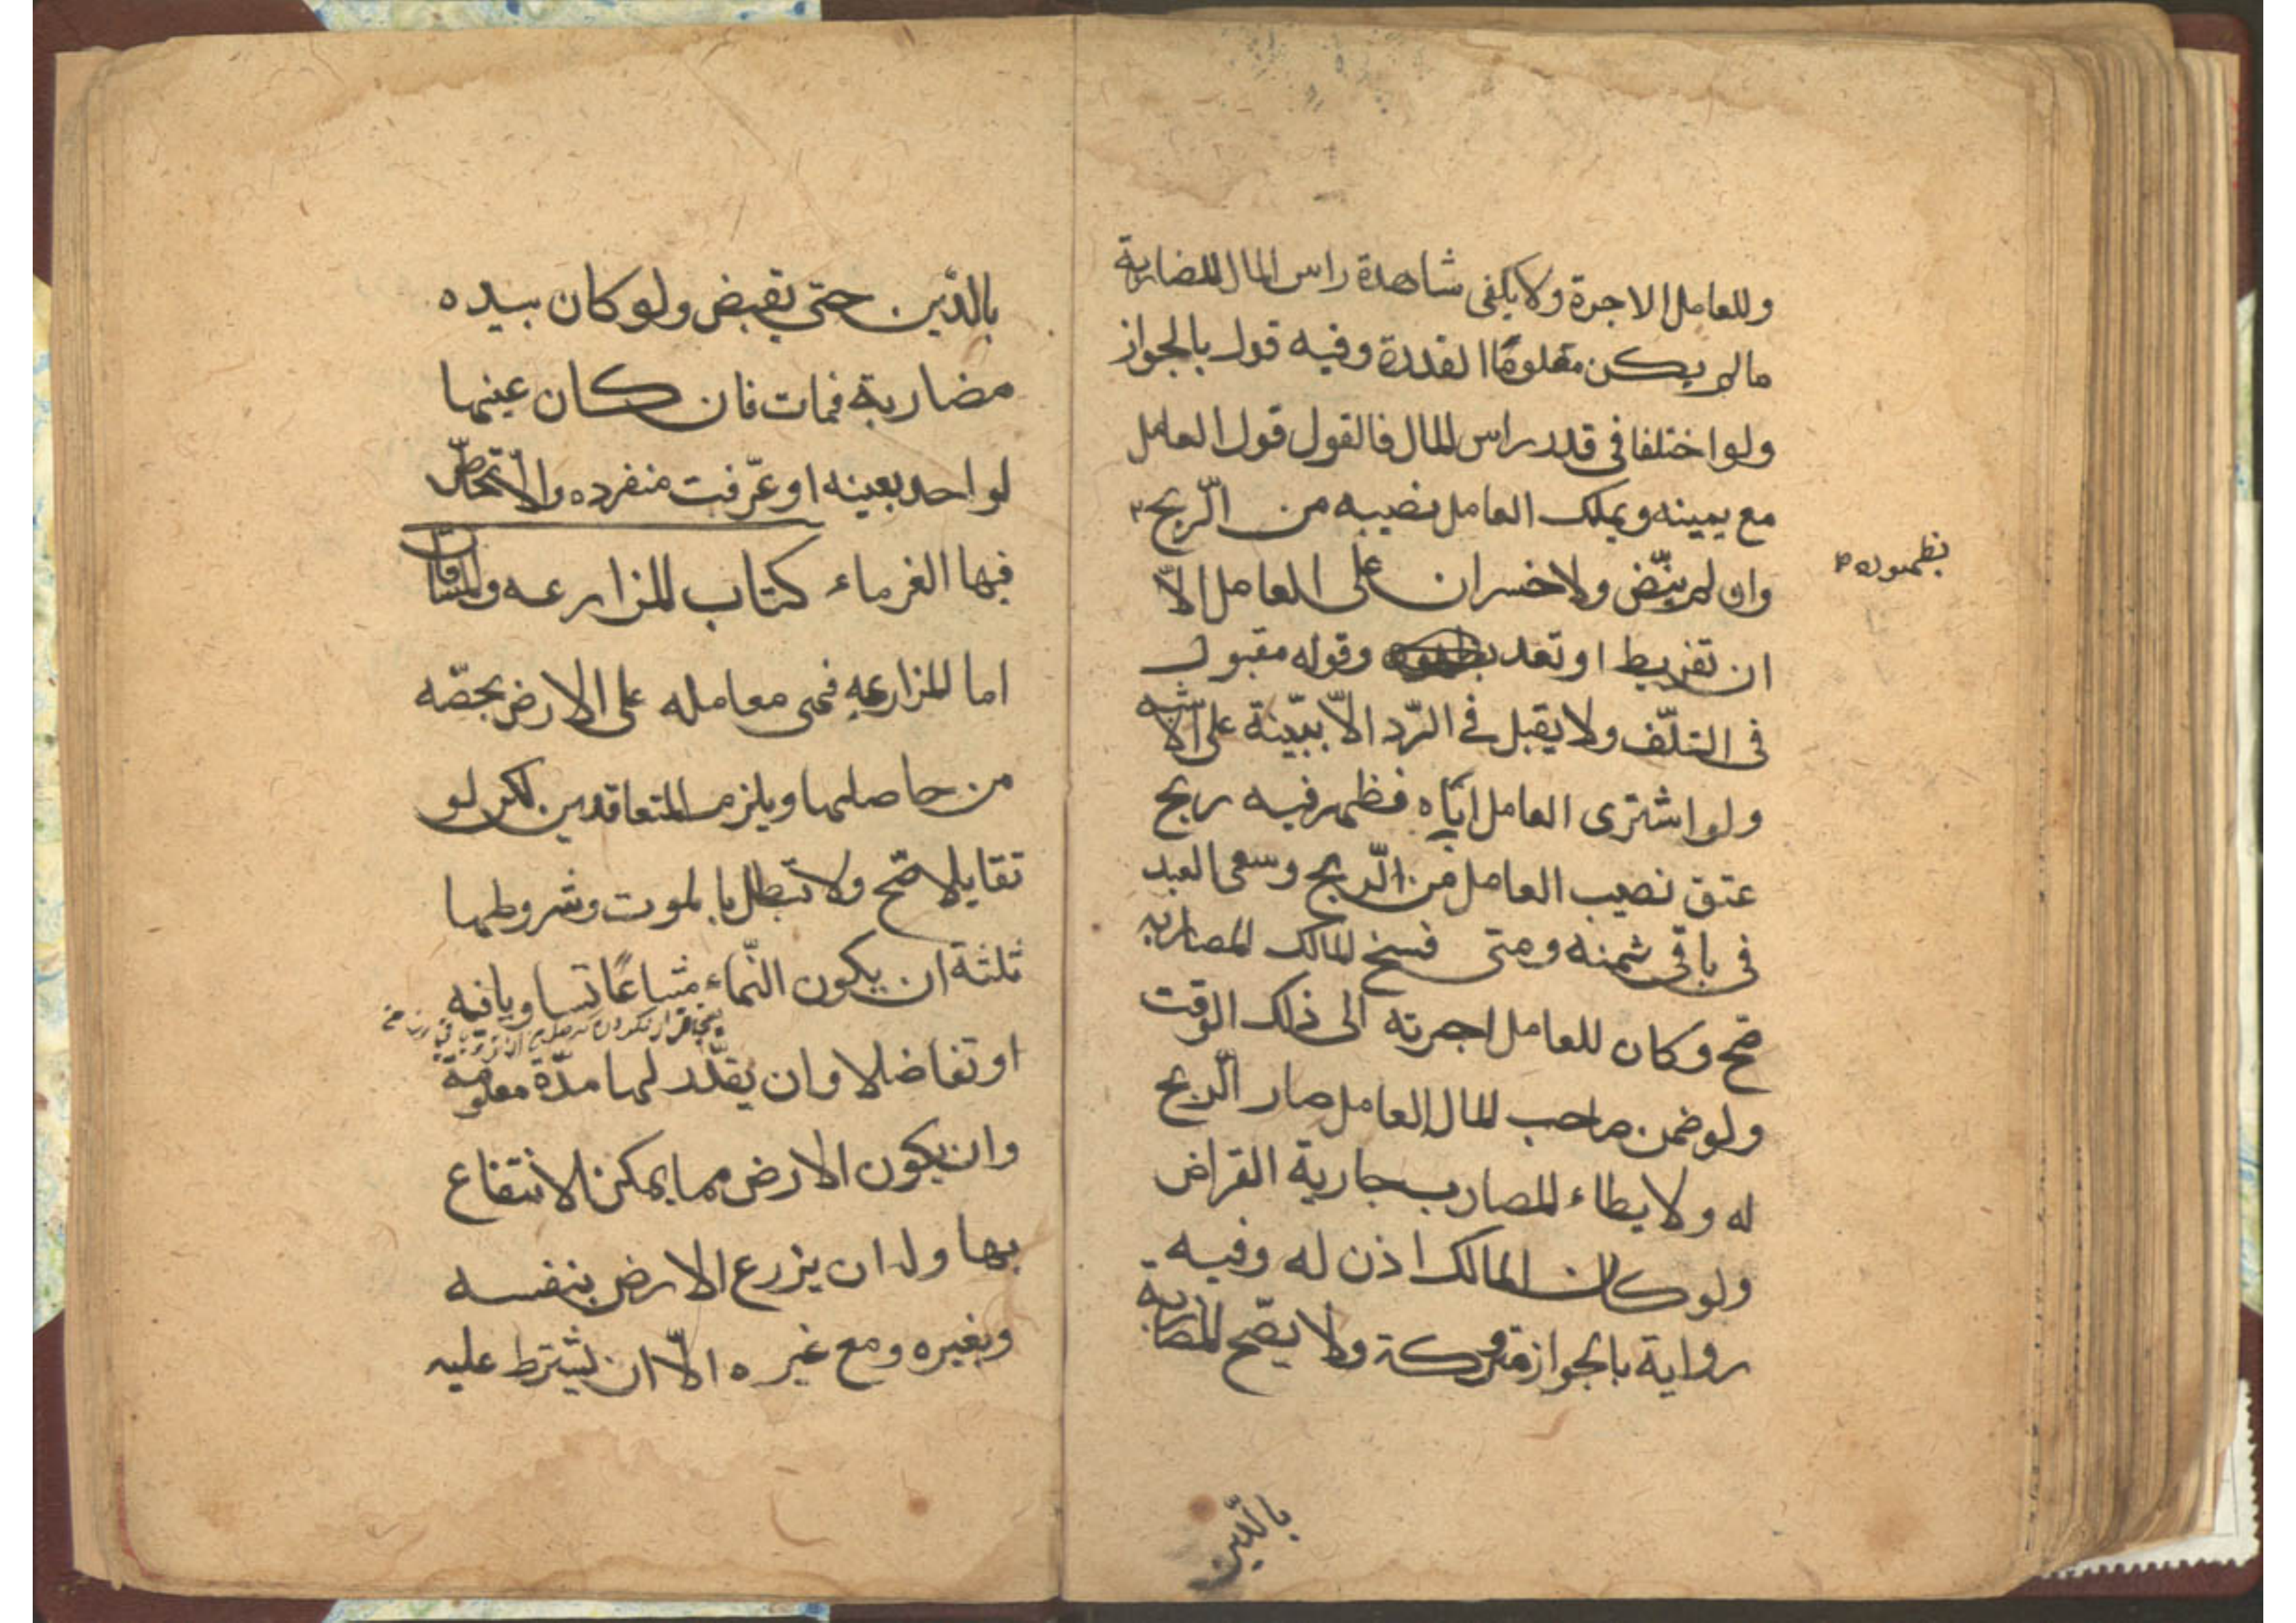 وللعامل الاجرة ولا يكفى شاهدة راس المال للمضاربة
مالم يكن معلوما القدرة وفيه قول بالجواز
ولو اختلفا فى قدر راس المال فالقول قول العامل
مع يمينه ويملك العامل نصيبه من الرّبح
وان لم ينّض ولا خسران على العامل الاّ
ان تفريط او تعد وقوله مقبول
فى التلّف ولا يقبل فى الرّد الاّ ببيّنة على الاشبه
ولو اشترى العامل ايّاه فظهر فيه ربح
عتق نصيب العامل من الرّبح وسعى العبد
فى باقى ثمنه ومتى فسخ المالك المضاربه
صّح وكان للعامل اجرته الى ذلك الوقت
ولو ضمن صاحب المال العامل صار الرّبح
له ولا يطاء المضارب جارية القراض
ولو كان المالك اذن له وفيه
رواية بالجواز متروكة ولا يصّح المضاربة
بالدّين
بالدّين حتى يقبض ولو كان بيده
مضاربة فمات فان كان عينها
لواحد بعينه او عرّفت منفرده والاّ تحاصّ
فيها الغرماء كتاب المزارعه والمساقاة
اما المزارعه فهى معامله على الارض بحصّه
من حاصلها ويلزم المتعاقدين لكن لو
تقايلا صّح ولا تبطل بالموت وشروطها
ثلثة ان يكون النّماء مشاعًا تساويا فيه
او تفاضلا وان يقدّر لها مدّة معلومة
وان يكون الارض مما يمكن الانتفاع
بها وله ان يزرع الارض بنفسه
وبغيره ومع غيره الاّ ان يشترط عليه